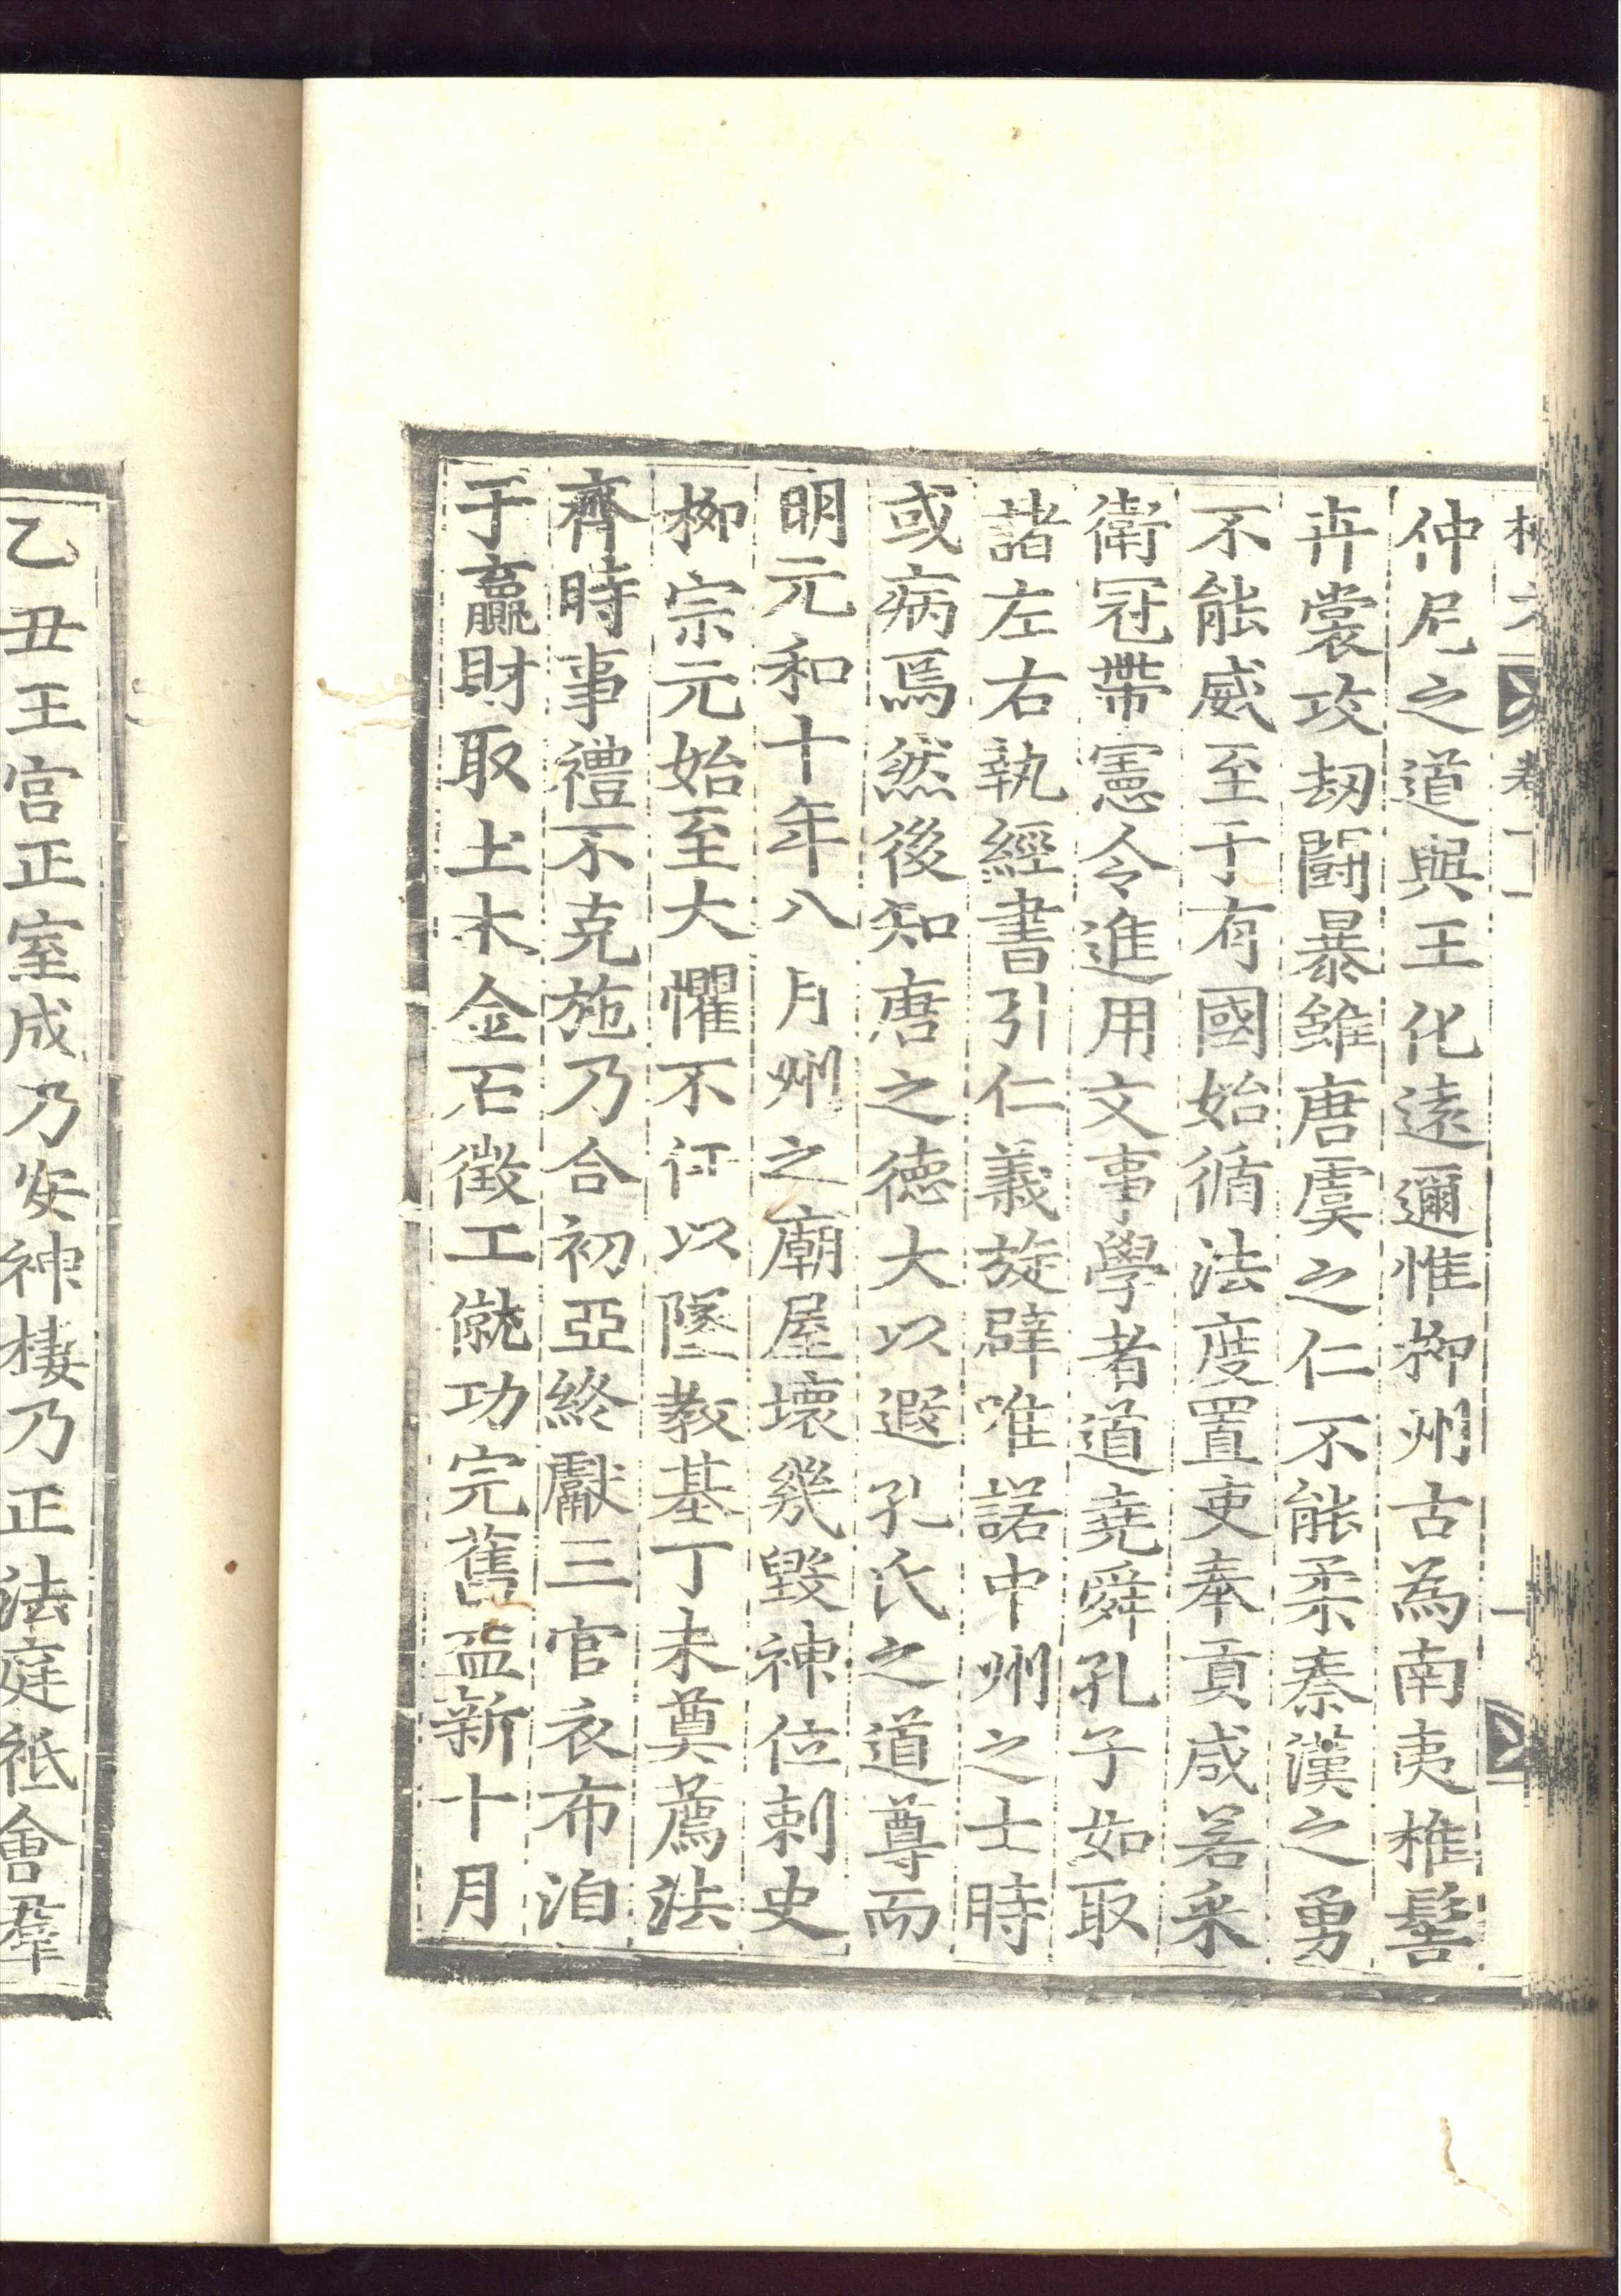 仲尼之道與王化遠邇惟柳州古為南夷椎髻
卉裳攻劫鬪暴雖唐虞之仁不能柔秦漢之勇
不能威至于有國始循法度置吏奉貢咸若采
衛冠帶憲令進用文事學者道堯舜孔子如取
諸左右執經書引仁義旋辟唯諾中州之士時
或病焉然後知唐之德大以遐孔氏之道尊而
明元和十年八月州之廟屋壞幾毀神位刺史
柳宗元始至大懼不任以墜教基丁未奠薦法
齊時事禮不克施乃合初亞終獻三官衣布洎
于羸財取土木金石徵工僦功完舊益新十月
乙丑王宮正室成乃安神棲乃正法庭祗會羣